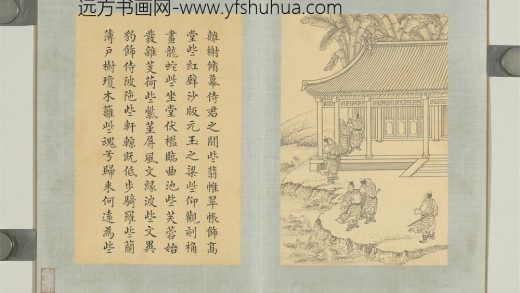 远方书画网-www.yfshuhua.com
離榭脩幕侍君之閒些翡帷翠帳飾高
堂些紅壁沙版元玉之梁些仰觀刻桷
畫龍蛇些坐堂伏檻臨曲池些芙蓉始
發雜芰荷些紫莖屏風文緣波些文異
豹飾侍陂陁些軒輬既低步騎羅些蘭
薄戶樹瓊木籬些魂兮歸來何遠為些